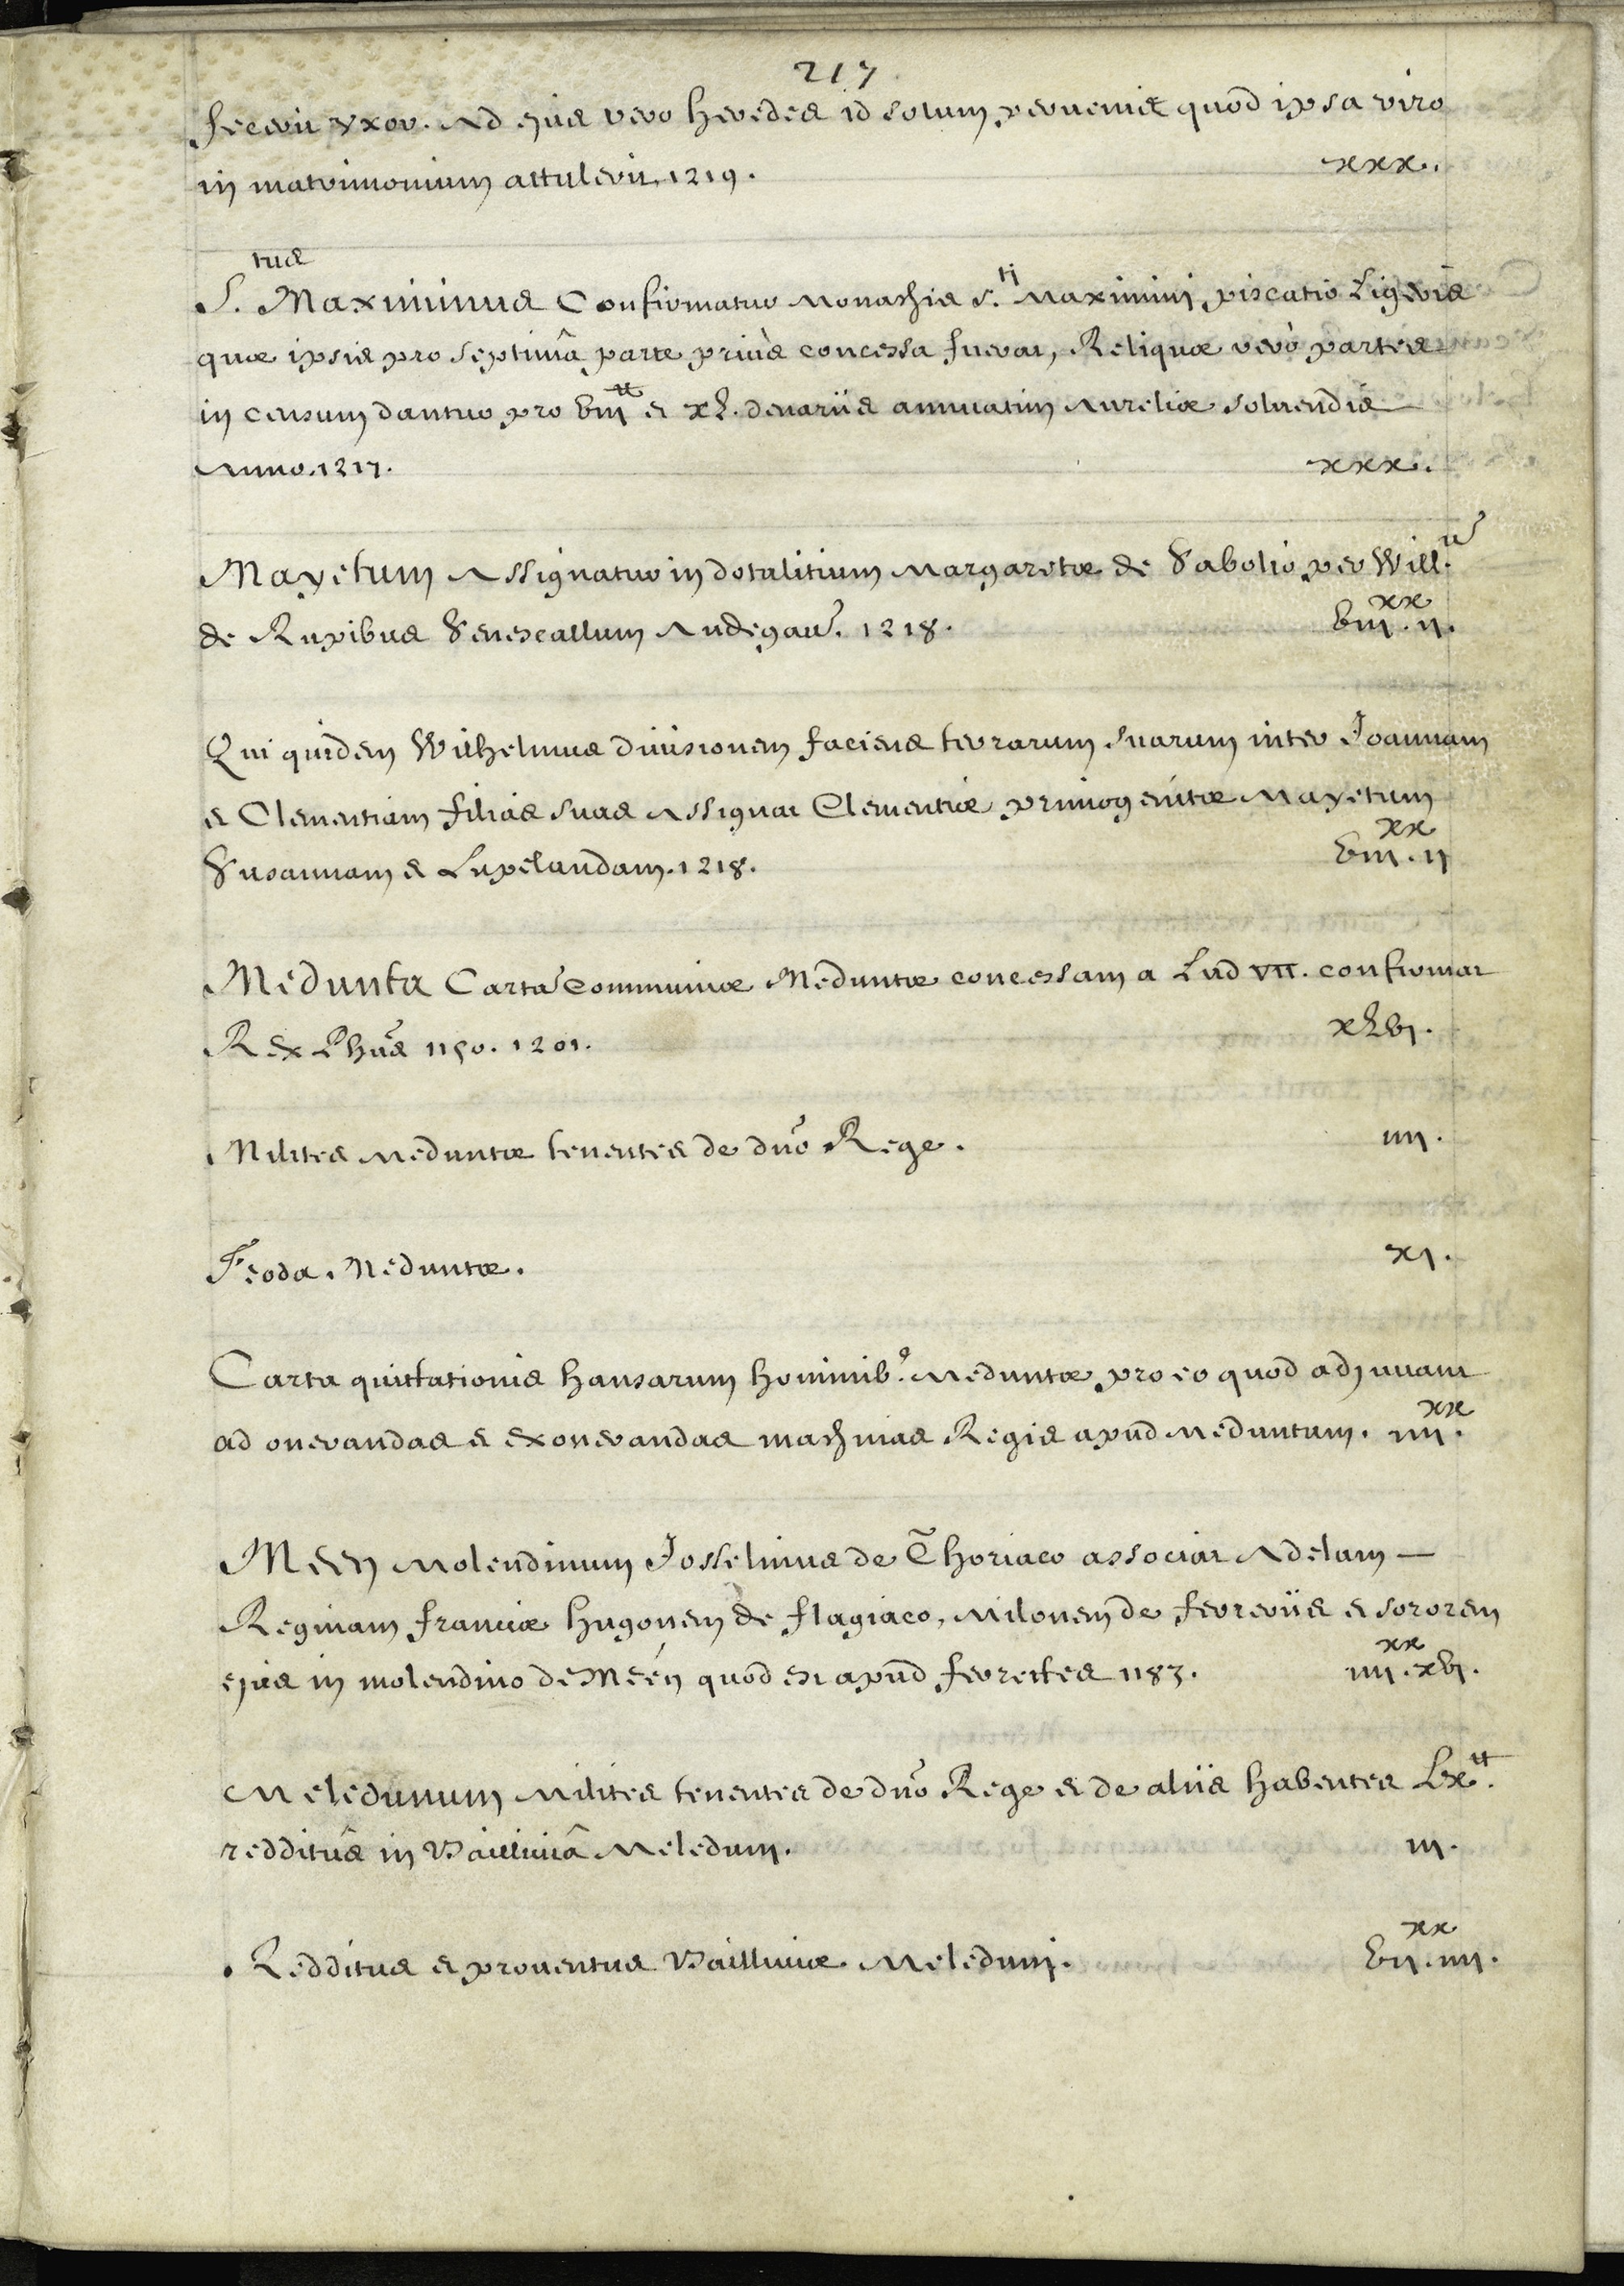 217
fecerit vxor. Ad ejus vero heredes id solum perveniet quod ipsa viro
in matrimonium attulerit. 1219. xxx.
S.tus Maximinus Confirmatur Monachis S.ti Maximini piscatio Ligeris
quæ ipsis pro septimâ parte priùs concessa fuerat, Reliquæ verò partes
in censum dantur pro viii.tt et xl. denariis annuatim Aureliæ solvendis
Anno. 1217. xxx.
Mayetum Assignatur in dotalitium Margaretæ de Sabolio per Will.
de Rupibus Senescallum Andegav. 1218. viii.xx ii.
Qui quidem Wilhelmus divisionem faciens terrarum suarum inter Joannam
et Clementiam filias suas Assignat Clementiæ primogenitæ Mayetum
Susannam et Lupelandam. 1218. viii.xx ii
Medunta Cartã Communiæ Meduntæ concessam a Lud VII. confirmat
Rex Phũs 1150. 1201. xlvi.
Milites Meduntæ tenentes de dño Rege. iiii.
Feoda Meduntæ. xi.
Carta quittationis hansarum hominib.9 Meduntæ pro eo quod adjuvant
ad onerandas et exonerandas machinas Regis apud Meduntam. iiii.xx
Meen Molendinum Josselinus de Thoriaco associat Adelam
Reginam franciæ hugonem de flagiaco, Milonem de ferreriis et sororem
ejus in molendino de Meén quod est apud ferrettes 1183. iiii.xx xvi.
Meledunum Milites tenentes de dño Rege et de aliis habentes Lx.tt
redditûs in Bailliviâ Meledun. iii.
Redditus et proventus Bailliviæ Meleduni. vii.xx iiii.